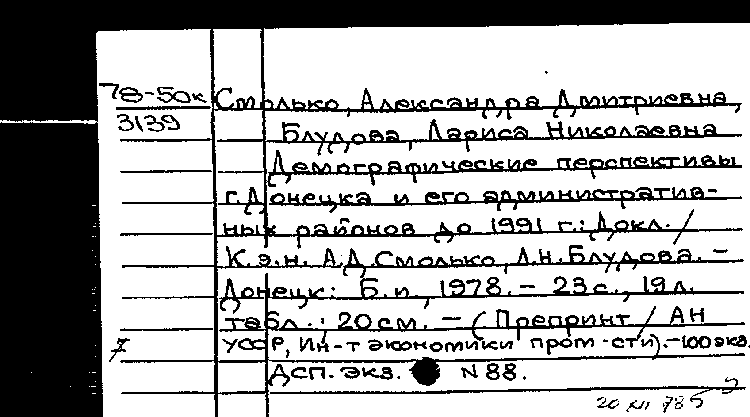 78-50к Смолько, Александра Дмитриевна,
3139 Блудова, Лариса Николаевна
Демографические перспективы
г. Донецка и его административ-
ных районов до 1991 г.: Докл. /
К.э.н. А.Д. Смолько, Л.Н. Блудова. -
Донецк: Б.и., 1978. - 23 с., 19 л.
табл.; 20 см. - (Препринт / АН
7 УССР, Ин-т экономики пром-сти). - 100 экз.
Дсп. экз. N 88.
20 XII 78